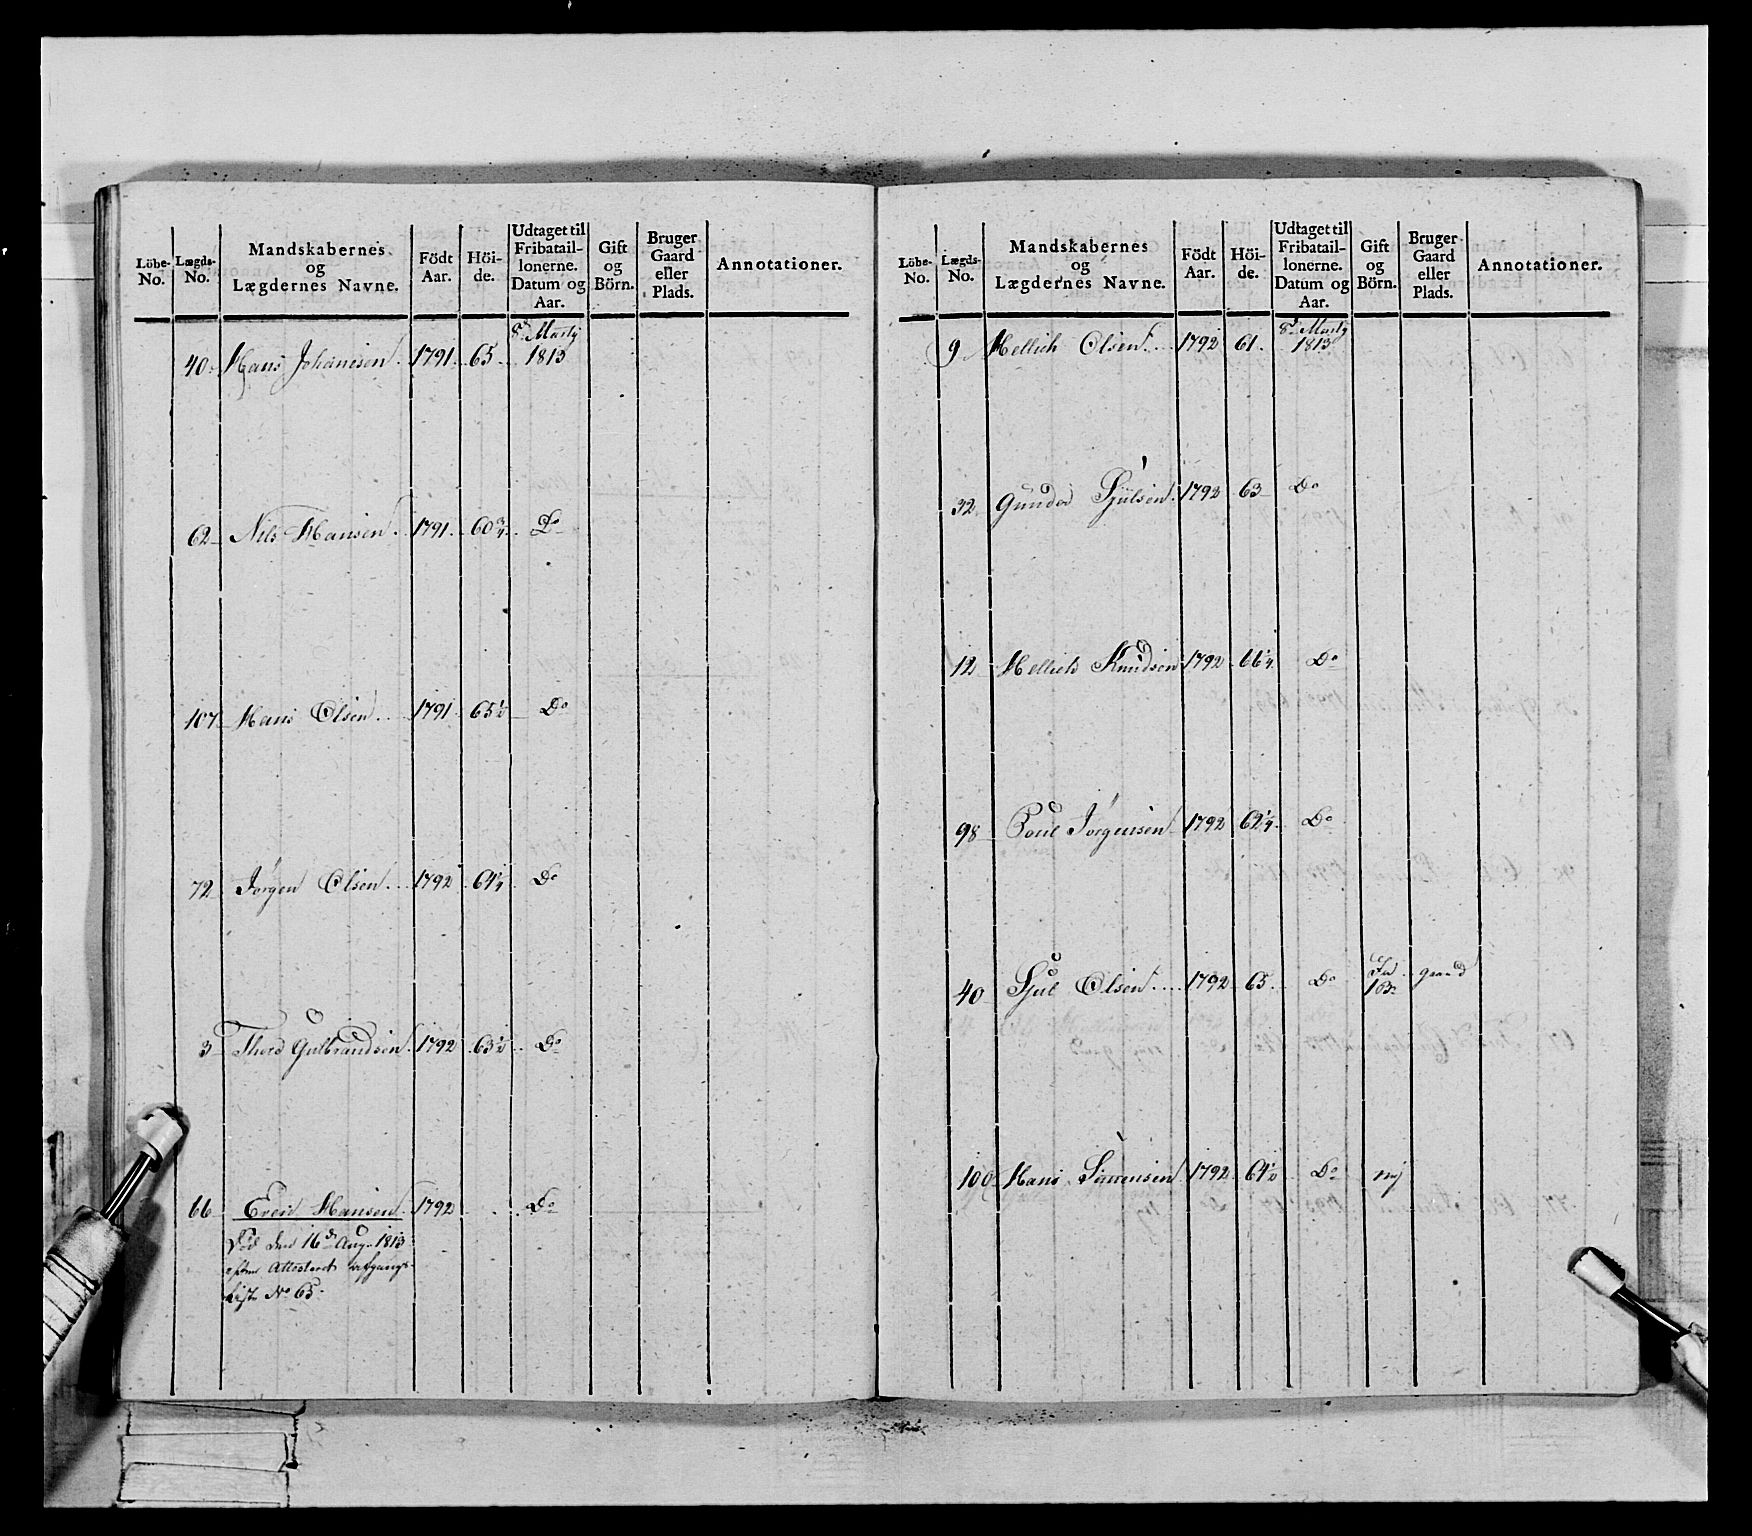 Löbe-No. Lægds-No. Mandskabernes og Lægdernes Navne. Födt Aar. Höi-de. Udtaget til Fribatail-lonerne. Datum og Aar. Gift og Börn. Bruger Gaard eller Plads. Annotationer.
8d Martj
40. Hans Johansen. 1791. 65. 1813
62 Nils Hansen. 1791. 60 3/4. Do
107 Hans Olsen. 1791. 65 1/2 Do
72 Jörgen Olsen. 1792 64 1/4 Do
3 Thord Gulbrandsen. 1792 63 1/2 Do
66 Even Hansen. 1792 Do
Död den 16de Aug. 1813
efter Attesteret Afgangs-
liste No 65.
Löbe-No. Lægds-No. Mandskabernes og Lægdernes Navne. Födt Aar. Höi-de. Udtaget til Fribatail-lonerne. Datum og Aar. Gift og Börn. Bruger Gaard eller Plads. Annotationer.
8d Martj
9 Hellich Olsen. 1792 61. 1813
32 Gunder Sjulsen. 1792 63 Do
12 Hellich Knudsen 1792 66 1/4 Do
98 Poul Jörgensen 1792 62 1/4. Do
40 Sjul Olsen. 1792 65. Do gaard
100 Hans Sörrensen 1792 64 1/2 Do nej